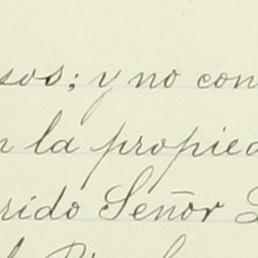 sos; y no con
n la propied
rido Señor